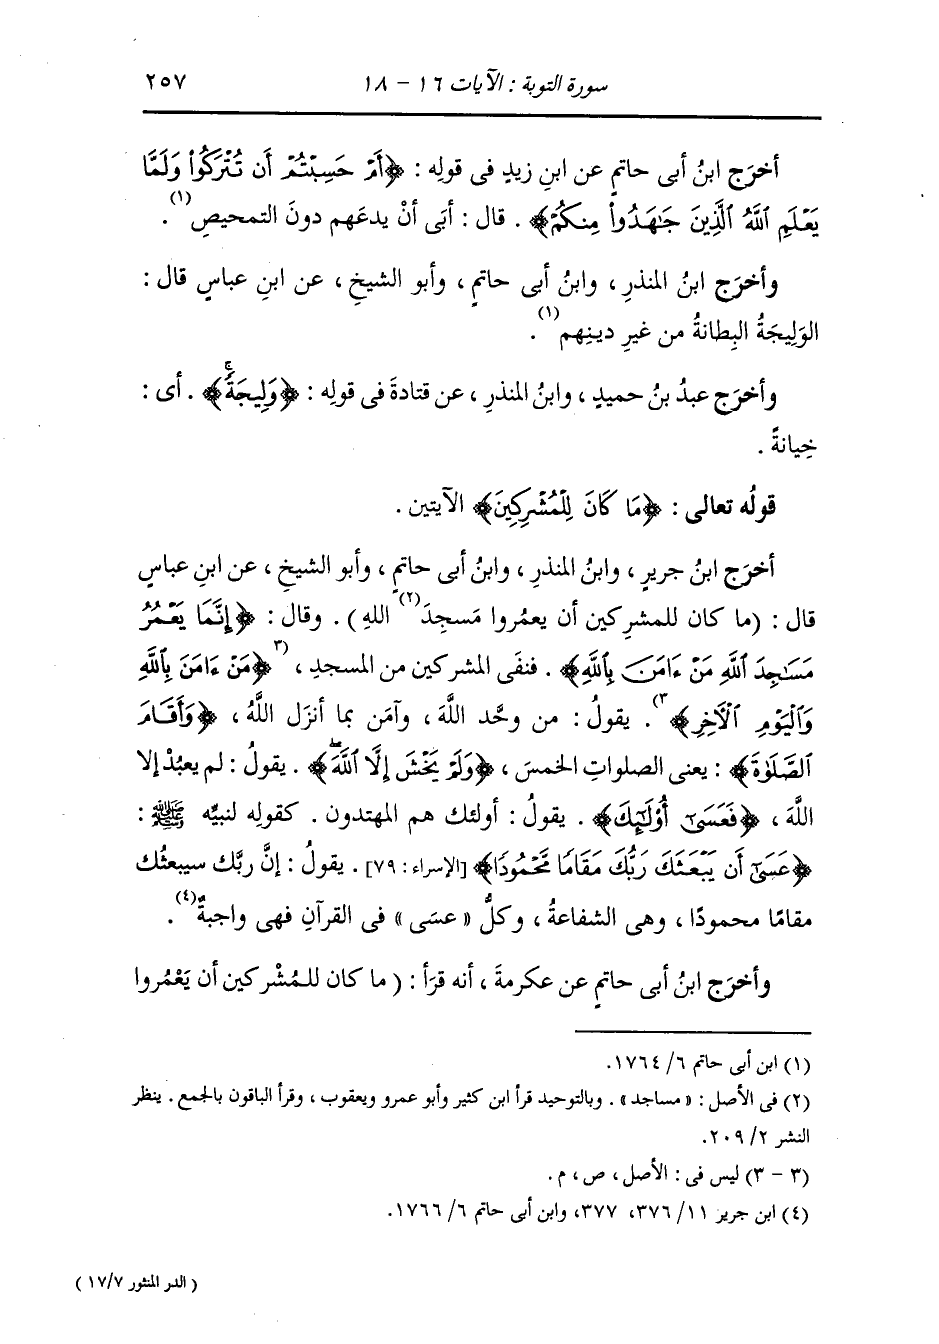 سورة التوبة : الآيات ١٦ - ١٨ ٢٥٧
أخرَج ابنُ أبى حاتمٍ عن ابنِ زيدٍ فى قولِه : ﴿أَمْ حَسِبْتُمْ أَن تُتْرَكُوا۟ وَلَمَّا
يَعْلَمِ ٱللَّهُ ٱلَّذِينَ جَـٰهَدُوا۟ مِنكُمْ﴾ . قال : أبَى أنْ يدعَهم دونَ التمحيصِ(١) .
وأخرَج ابنُ المنذرِ ، وابنُ أبى حاتمٍ ، وأبو الشيخِ ، عن ابنِ عباسٍ قال :
الوَلِيجَةُ البِطانةُ من غيرِ دينِهم(١) .
وأخرَج عبدُ بنُ حميدٍ ، وابنُ المنذرِ ، عن قتادةَ فى قولِه : ﴿وَلِيجَةً ۚ﴾ . أى :
خِيانةً .
قولُه تعالى : ﴿مَا كَانَ لِلْمُشْرِكِينَ﴾ الآيتين .
أخرَج ابنُ جريرٍ ، وابنُ المنذرِ ، وابنُ أبى حاتمٍ ، وأبو الشيخِ ، عن ابنِ عباسٍ
قال : (ما كان للمشرِكين أن يعمُروا مَسجِدَ(٢) اللهِ) . وقال : ﴿إِنَّمَا يَعْمُرُ
مَسَـٰجِدَ ٱللَّهِ مَنْ ءَامَنَ بِٱللَّهِ﴾ . فنفَى المشركين من المسجدِ ، (٣﴿مَنْ ءَامَنَ بِٱللَّهِ
وَٱلْيَوْمِ ٱلْـَٔاخِرِ﴾٣) . يقولُ : من وحَّد اللَّهَ ، وآمَن بما أنزَل اللَّهُ ، ﴿وَأَقَامَ
ٱلصَّلَوٰةَ﴾ : يعنى الصلواتِ الخمسَ ، ﴿وَلَمْ يَخْشَ إِلَّا ٱللَّهَ ۖ﴾ . يقولُ : لم يعبُدْ إلا
اللَّهَ ، ﴿فَعَسَىٰٓ أُو۟لَـٰٓئِكَ﴾ . يقولُ : أولئك هم المهتدون . كقولِه لنبيِّه ﷺ :
﴿عَسَىٰٓ أَن يَبْعَثَكَ رَبُّكَ مَقَامًا مَّحْمُودًا﴾ [الإسراء : ٧٩] . يقولُ : إنَّ ربَّك سيبعثُك
مقامًا محمودًا ، وهى الشفاعةُ ، وكلُّ « عسَى » فى القرآنِ فهى واجبةٌ(٤) .
وأخرَج ابنُ أبى حاتمٍ عن عكرمةَ ، أنه قرَأ : ( ما كان للمُشْرِكين أن يَعْمُروا
(١) ابن أبى حاتم ٦/ ١٧٦٤.
(٢) فى الأصل : « مساجد » . وبالتوحيد قرأ ابن كثير وأبو عمرو ويعقوب ، وقرأ الباقون بالجمع . ينظر
النشر ٢/ ٢٠٩.
(٣ - ٣) ليس فى : الأصل ، ص ، م .
(٤) ابن جرير ١١/ ٣٧٦، ٣٧٧، وابن أبى حاتم ٦/ ١٧٦٦.
( الدر المنثور ١٧/٧ )